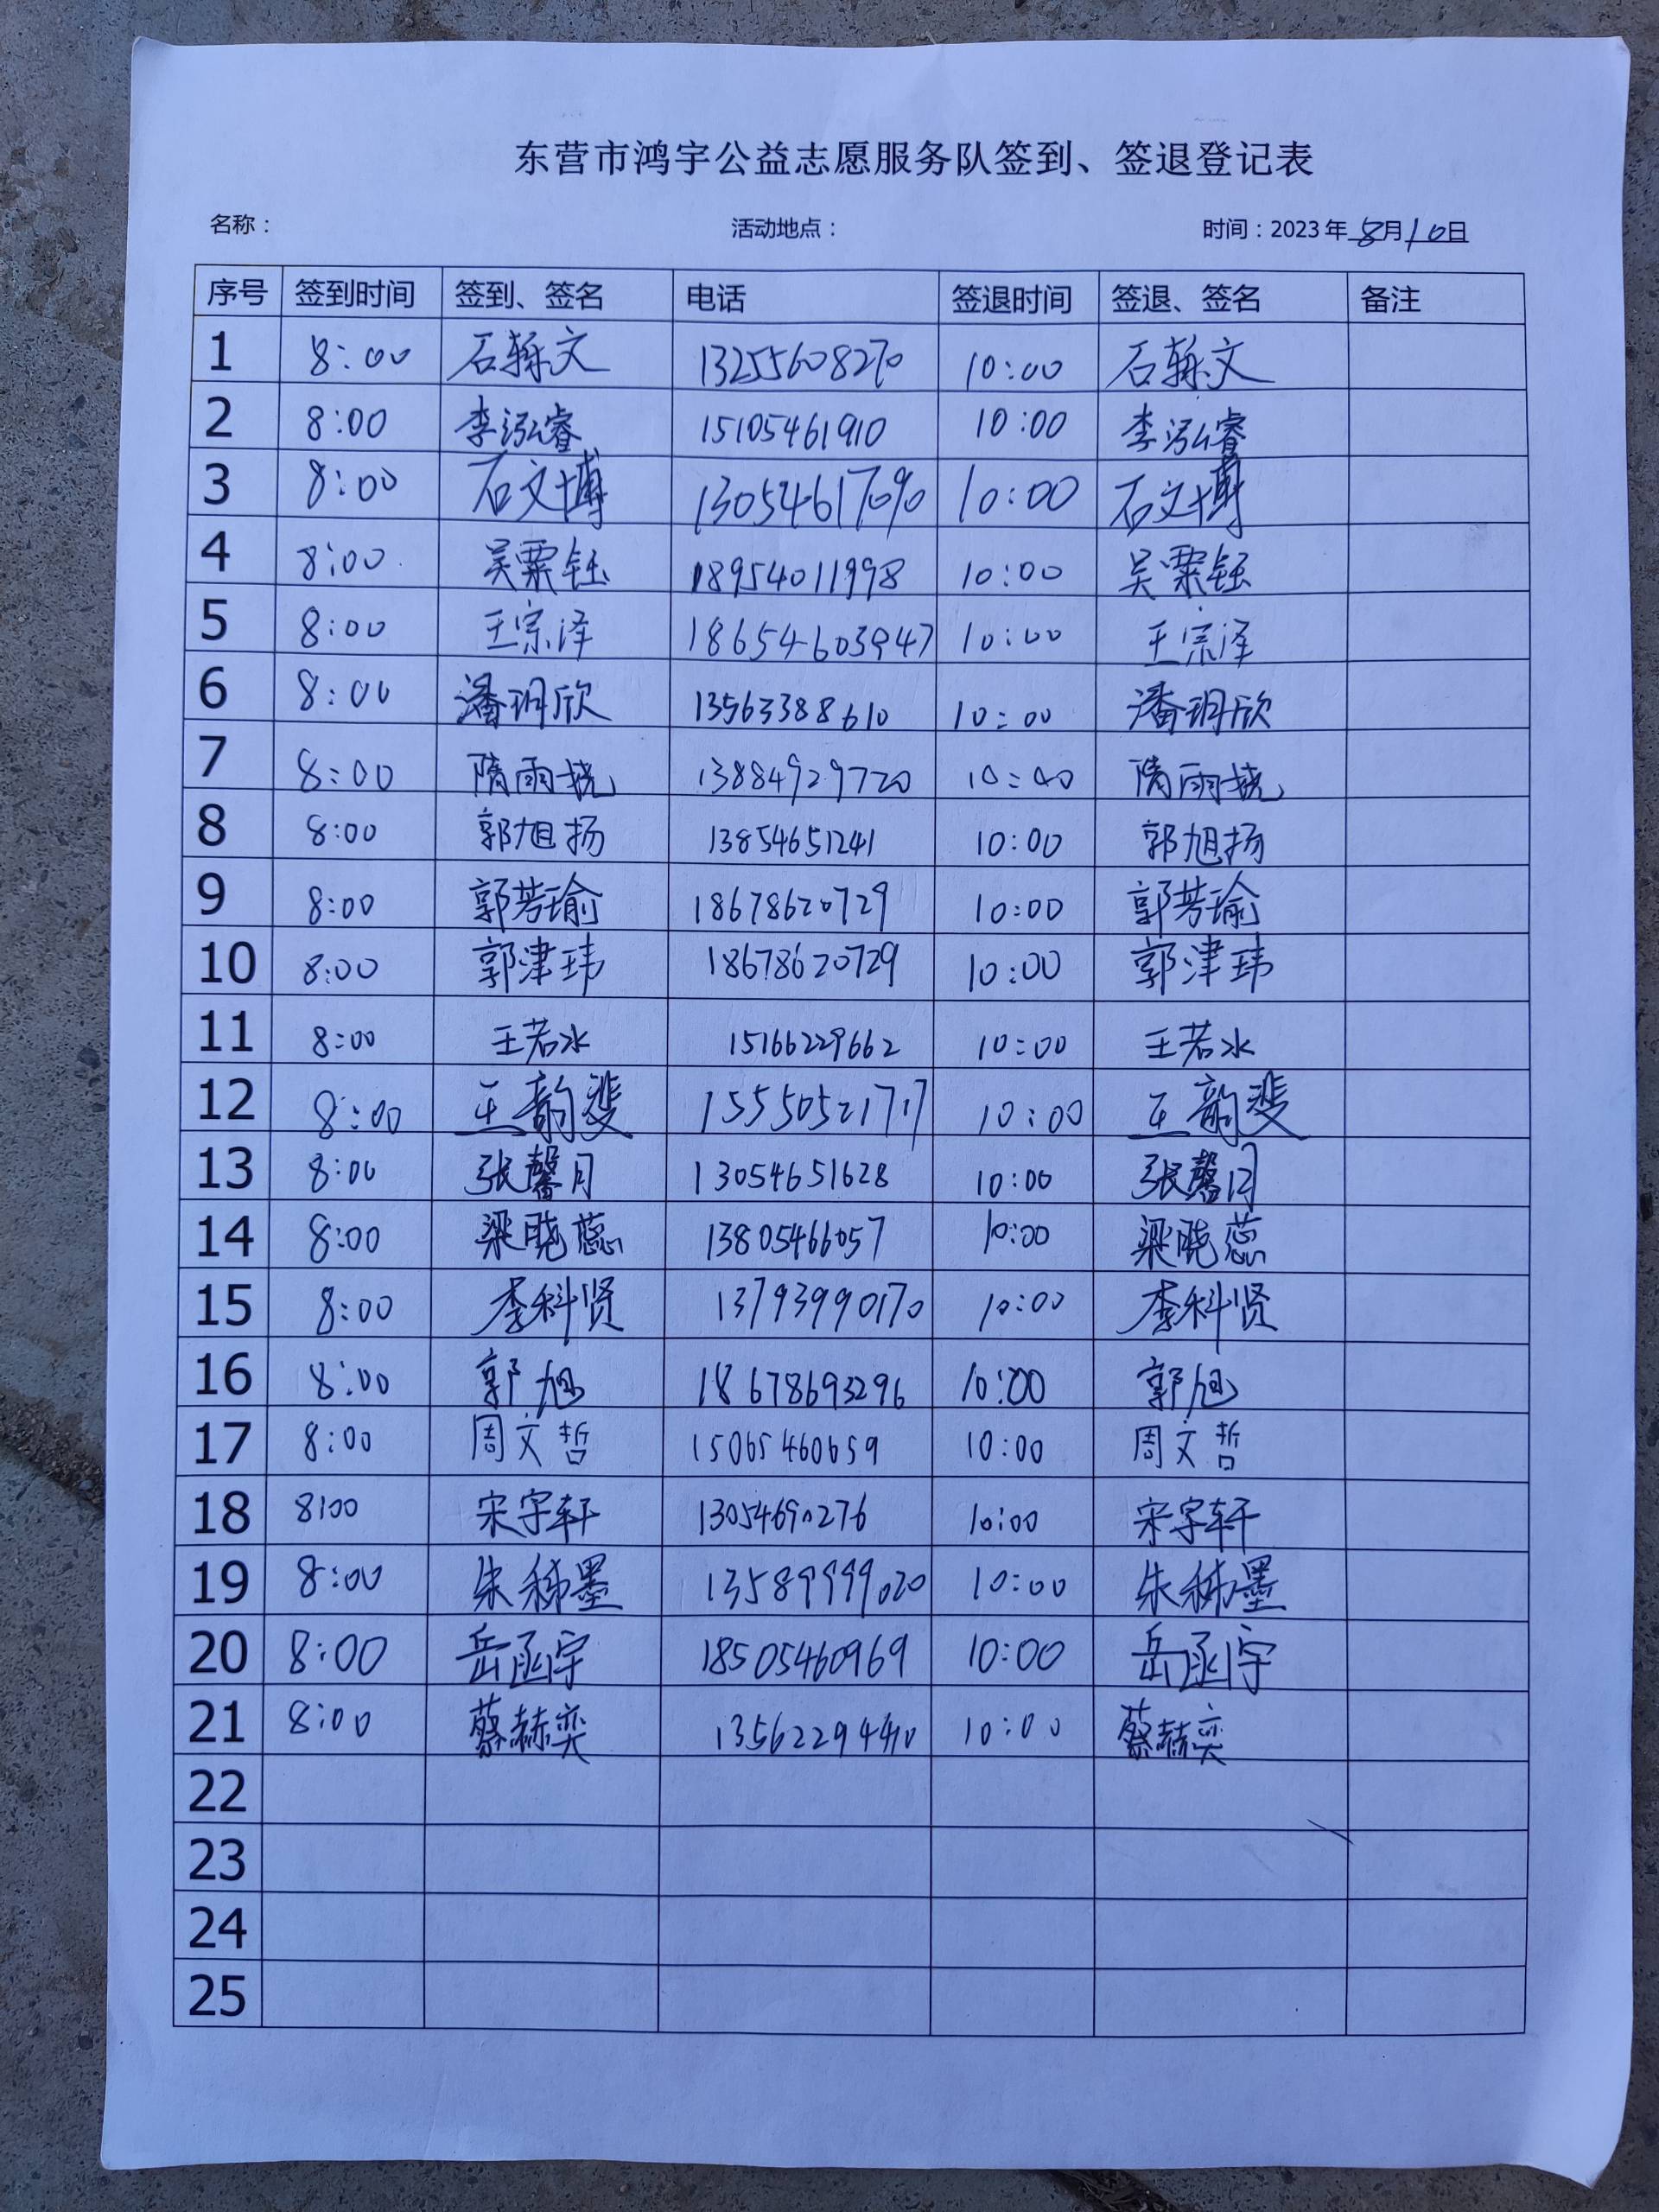 东营市鸿宇公益志愿服务队签到、签退登记表
名称： 活动地点： 时间：2023年8月10日
序号 签到时间 签到、签名 电话 签退时间 签退、签名 备注
1 8:00 石轹文 13255608270 10:00 石轹文
2 8:00 李泓睿 15105461910 10:00 李泓睿
3 8:00 石文博 13054617090 10:00 石文博
4 8:00 吴粟钰 18954011998 10:00 吴粟钰
5 8:00 王宗泽 18654603947 10:00 王宗泽
6 8:00 潘玥欣 13563388610 10:00 潘玥欣
7 8:00 隋雨桡 13884929720 10:00 隋雨桡
8 8:00 郭旭扬 13854651241 10:00 郭旭扬
9 8:00 郭芳瑜 18678620729 10:00 郭芳瑜
10 8:00 郭津玮 18678620729 10:00 郭津玮
11 8:00 王若水 15166229662 10:00 王若水
12 8:00 王韵斐 15550521717 10:00 王韵斐
13 8:00 张馨月 13054651628 10:00 张馨月
14 8:00 梁晓蕊 13805466057 10:00 梁晓蕊
15 8:00 李科贤 13793990170 10:00 李科贤
16 8:00 郭旭 18678693296 10:00 郭旭
17 8:00 周文哲 15065460659 10:00 周文哲
18 8:00 宋宇轩 13054690276 10:00 宋宇轩
19 8:00 朱稀墨 13589999020 10:00 朱稀墨
20 8:00 岳函宇 18505460969 10:00 岳函宇
21 8:00 蔡赫奕 13562294410 10:00 蔡赫奕
22
23
24
25